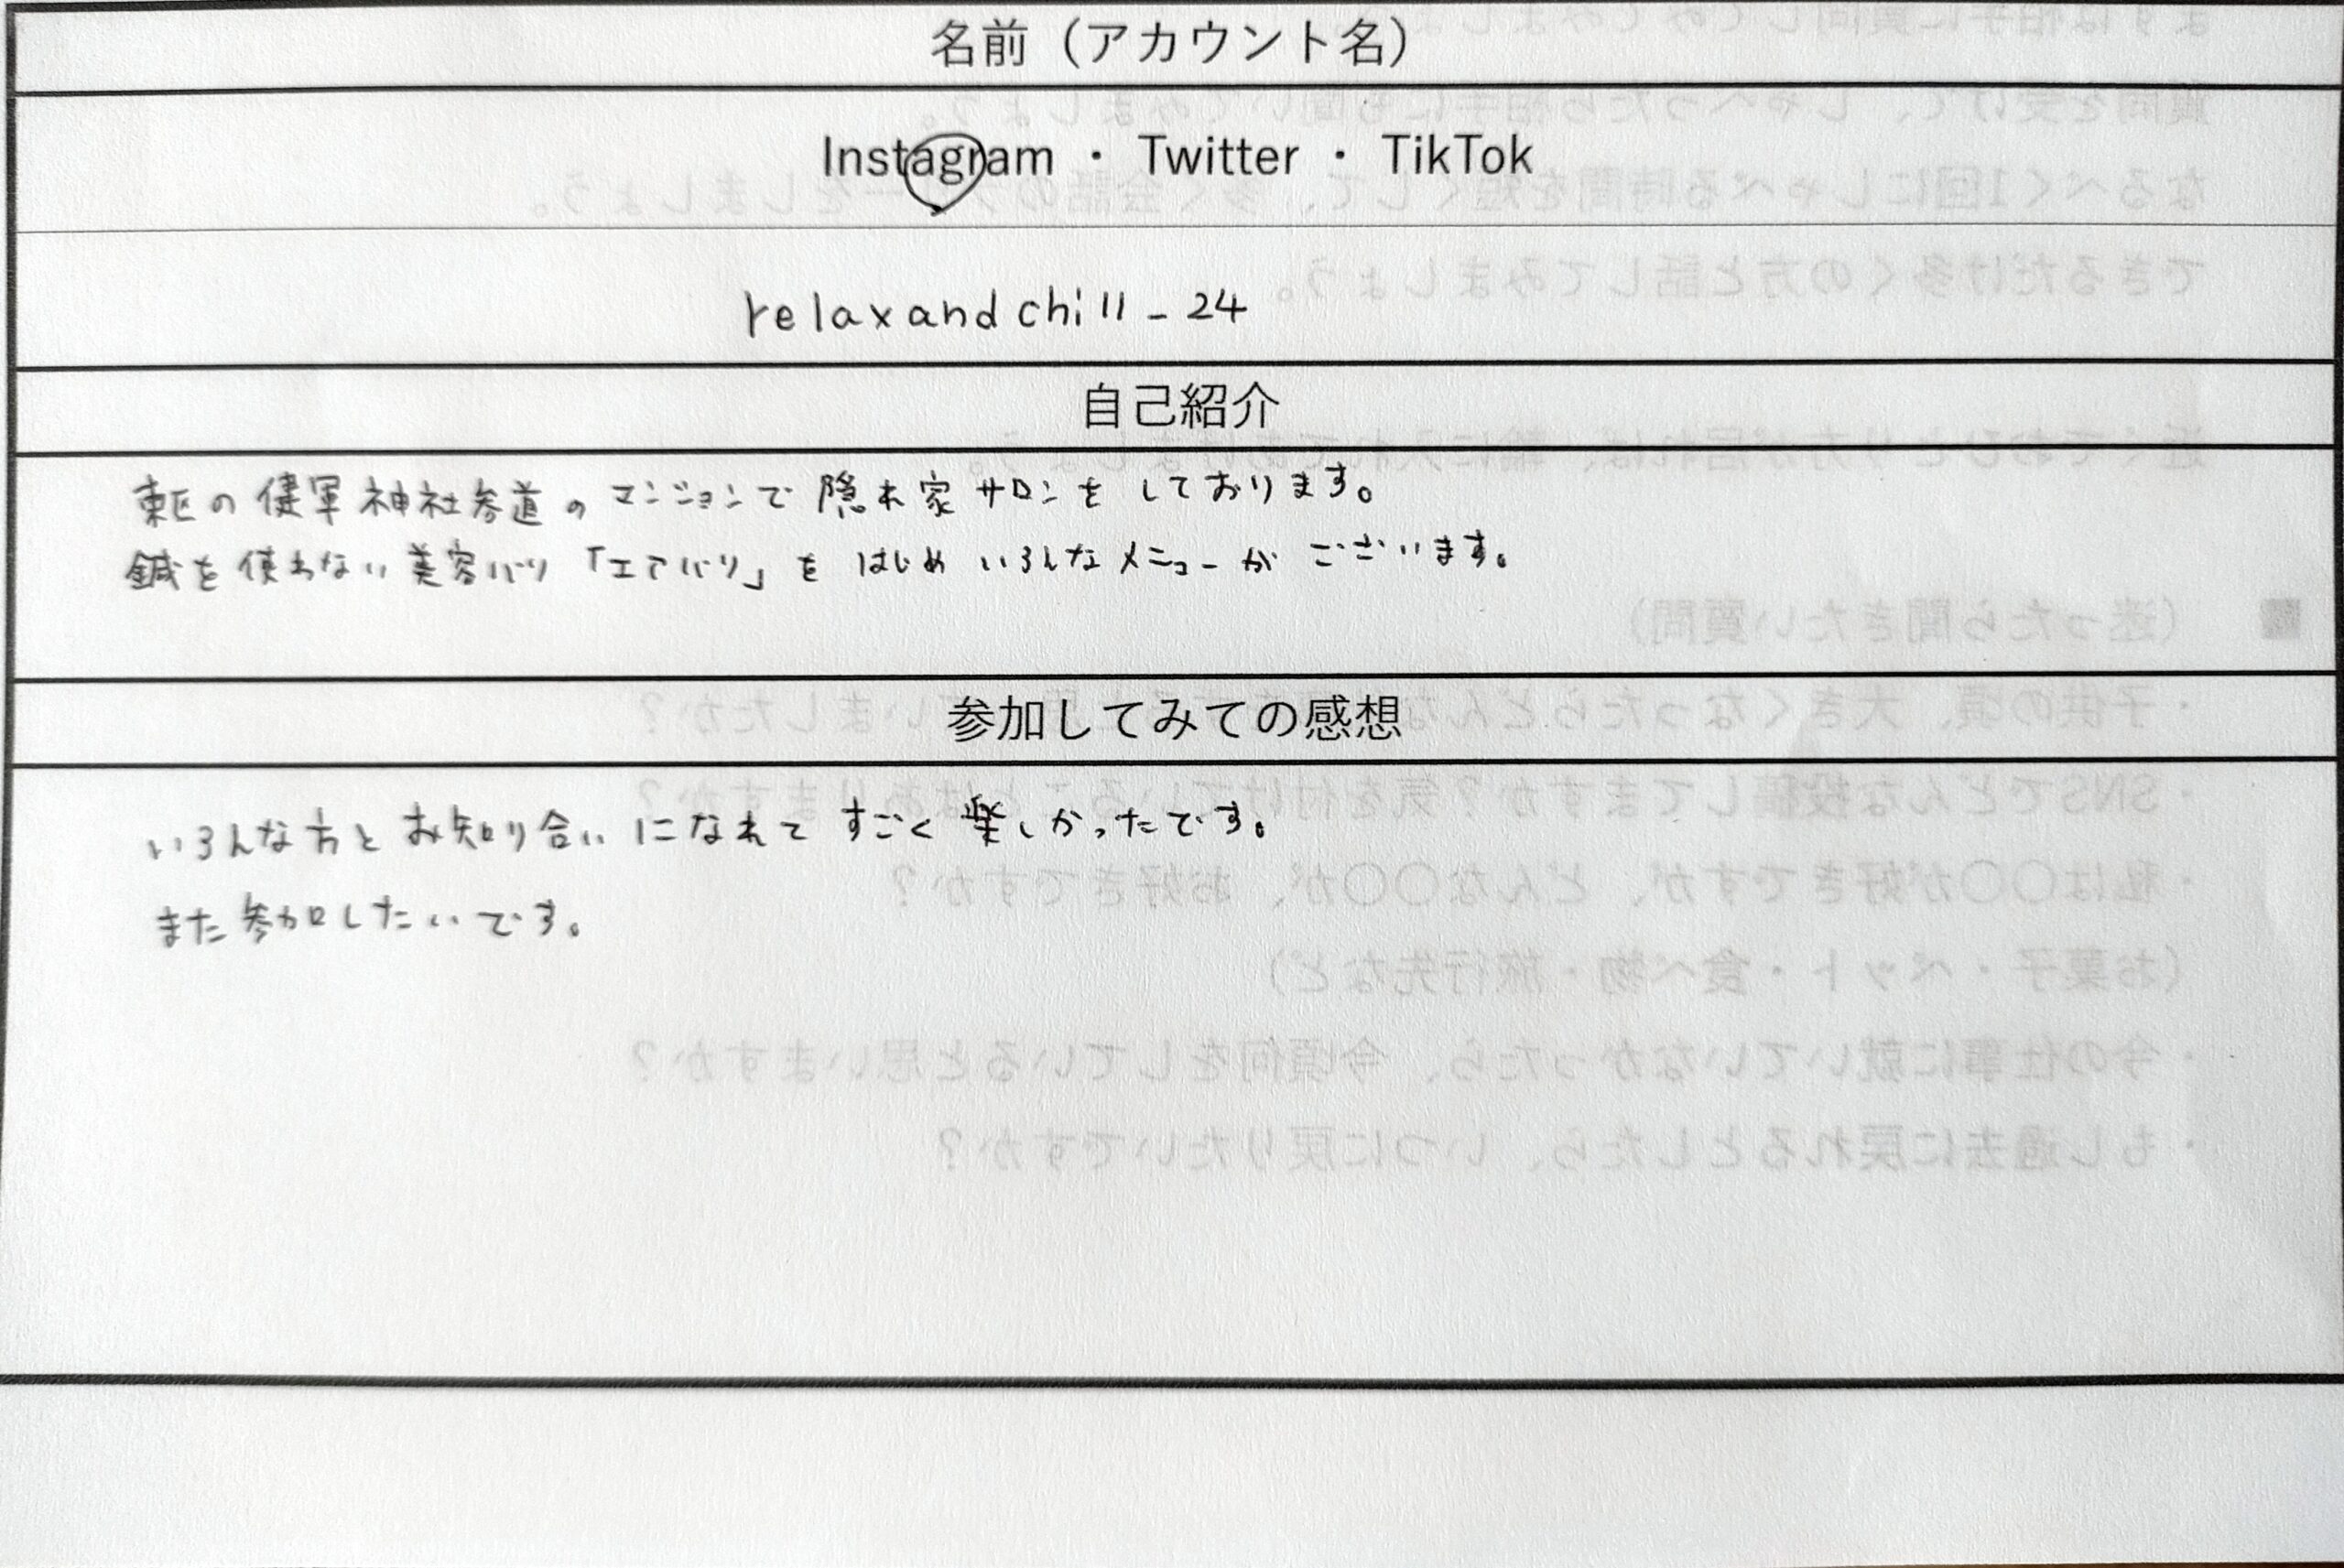 名前（アカウント名）
Instagram ・ Twitter ・ TikTok
relaxandchill_24
自己紹介
東区の健軍神社参道のマンションで隠れ家サロンをしております。
鍼を使わない美容バリ「エアバリ」をはじめいろんなメニューがございます。
参加してみての感想
いろんな方とお知り合いになれてすごく楽しかったです。
また参加したいです。